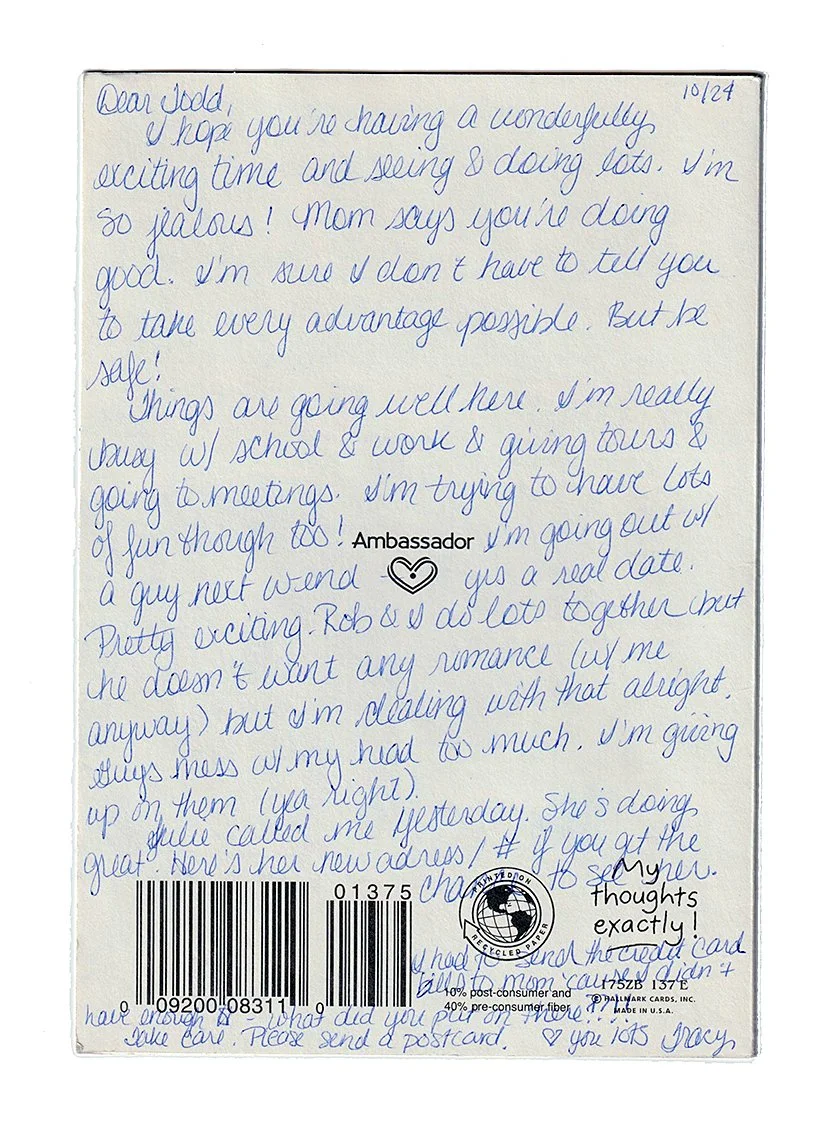 10/24
Dear Todd,
I hope you're having a wonderfully
exciting time and seeing & doing lots. I'm
so jealous! Mom says you're doing
good. I'm sure I don't have to tell you
to take every advantage possible. But be
safe!
Things are going well here. I'm really
busy w/ school & work & giving tours &
going to meetings. I'm trying to have lots
of fun though too! Ambassador I'm going out w/
a guy next w-end - yes a real date.
Pretty exciting. Rob & I do lots together but
he doesn't want any romance (w/ me
anyway) but I'm dealing with that alright.
Guys mess w/ my head too much. I'm giving
up on them (yea right).
Julie called me yesterday. She's doing
great. Here's her new adress/# if you get the
to see her.
My
thoughts
exactly!
PRINTED ON
RECYCLED PAPER
01375
I had to send the credit card
bill to mom 'cause I didn't
have enough $ - what did you put on there?!!
10% post-consumer and
40% pre-consumer fiber
175ZB 137 E
© HALLMARK CARDS, INC.
MADE IN U.S.A.
0 09200 08311 0
Take care. Please send a postcard. ♡ you lots Tracy